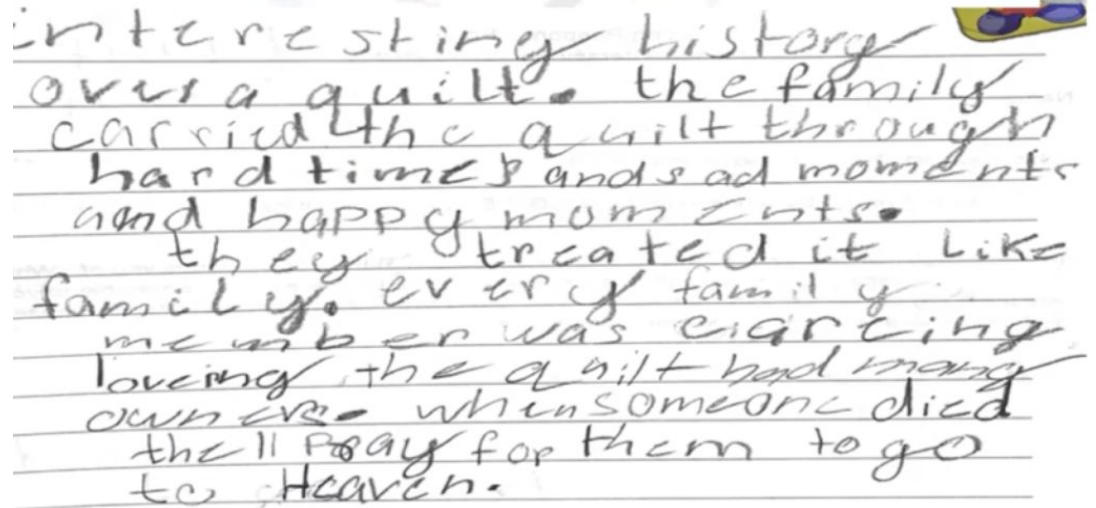 interesting history
over a quilt. the family
carried the quilt through
hard times and sad moments
and happy moments.
they treated it like
family. every family
member was careing
loveing the quilt had many
owners. when someone died
the'll pray for them to go
to Heaven.